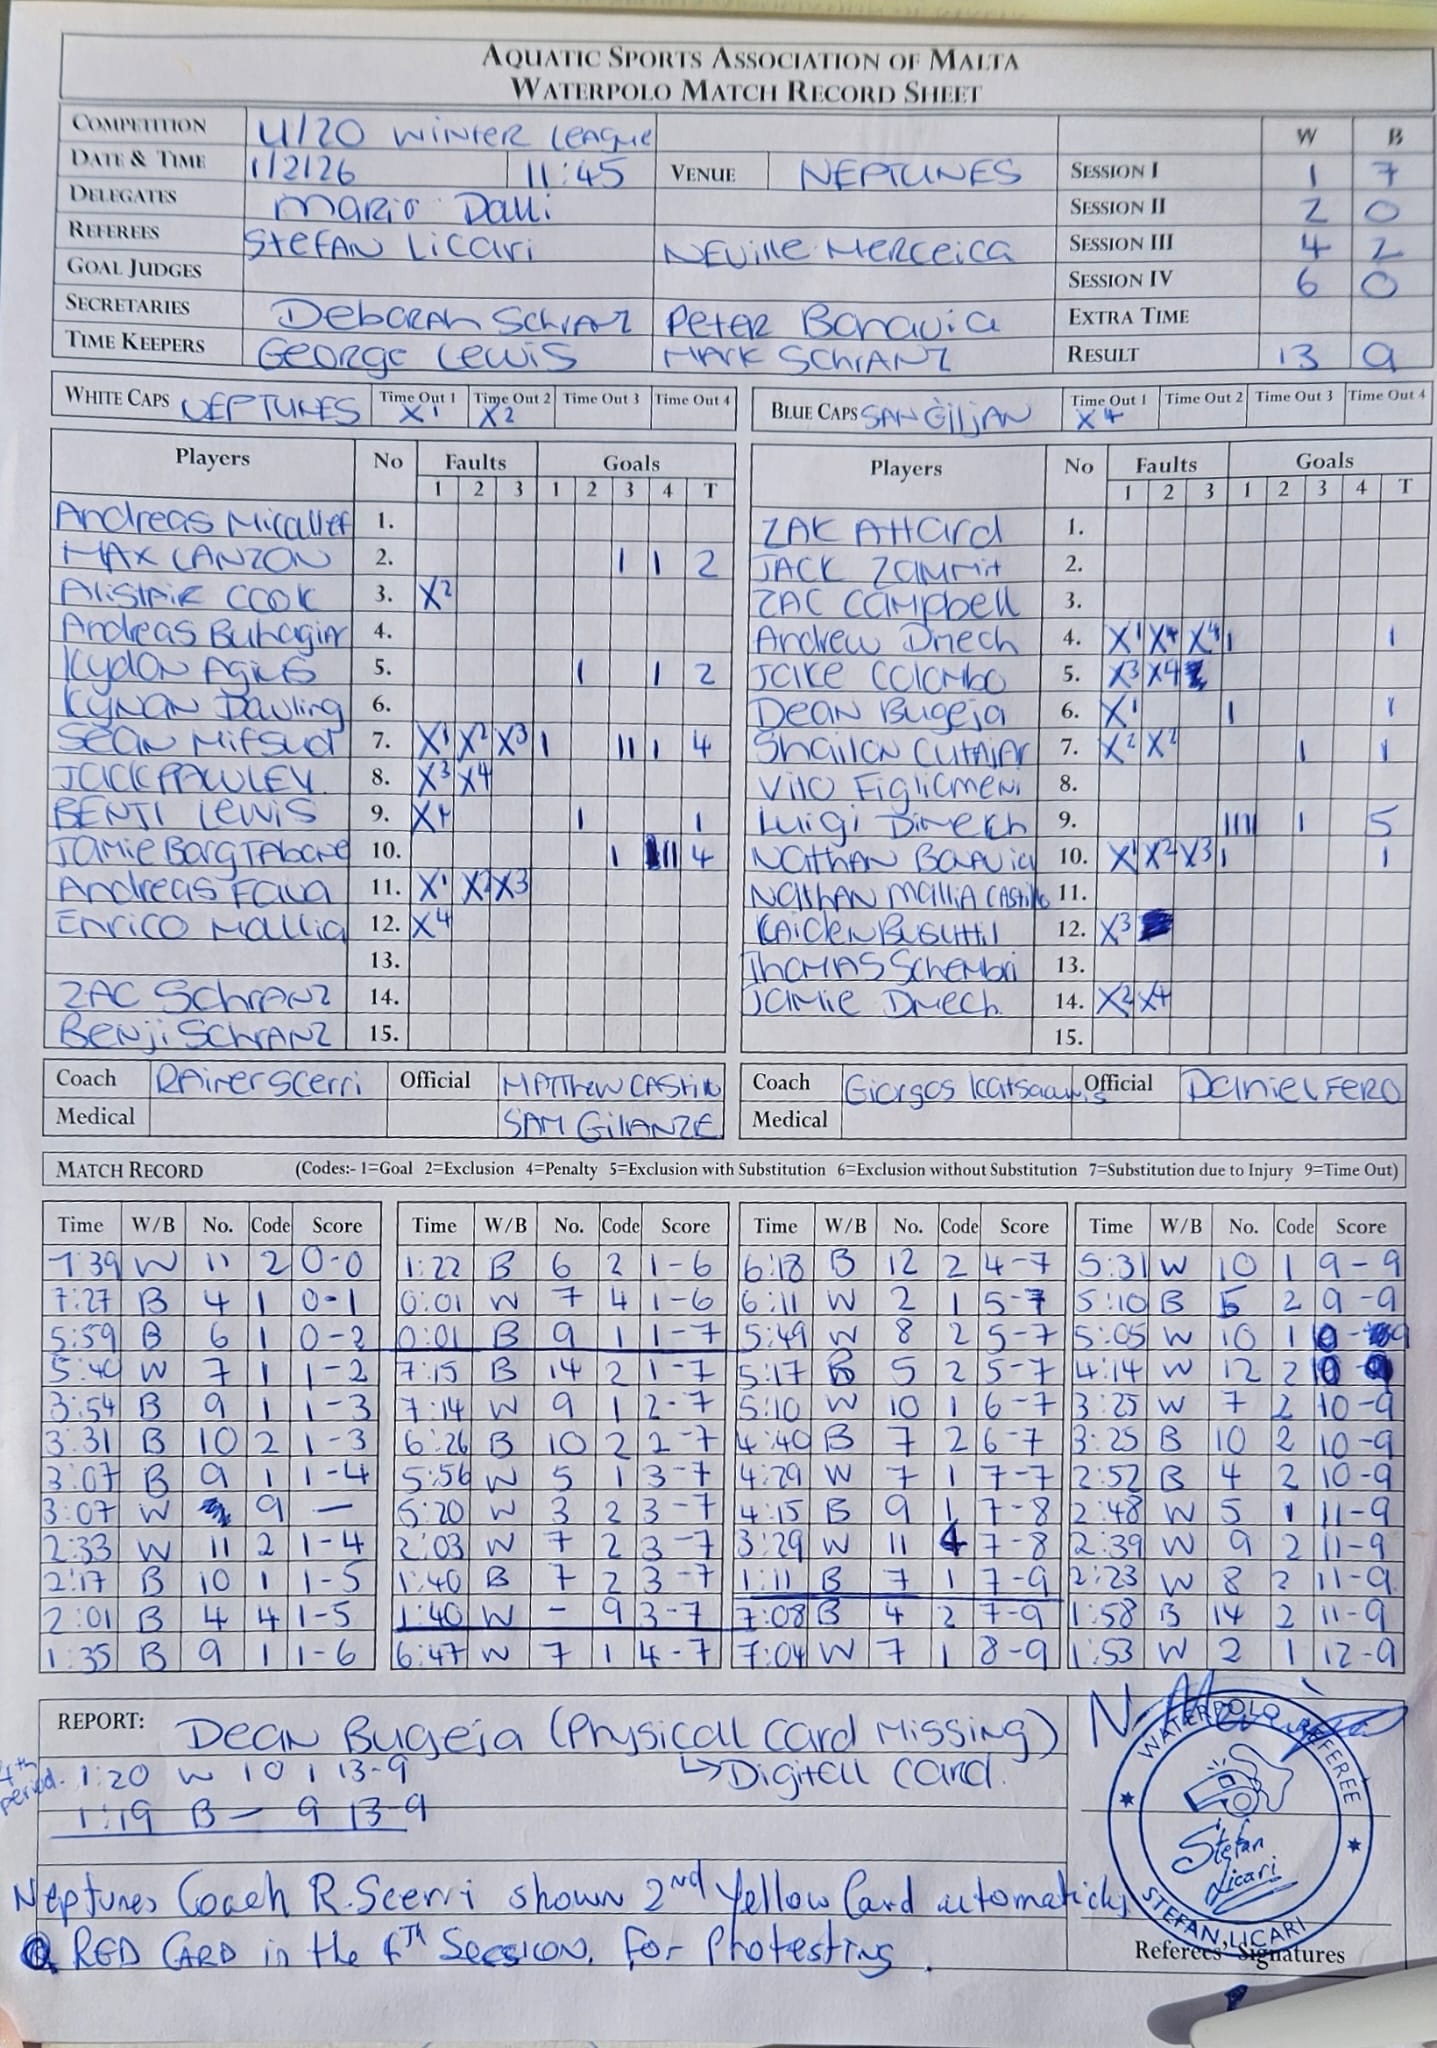 AQUATIC SPORTS ASSOCIATION OF MALTA
WATERPOLO MATCH RECORD SHEET
COMPETITION U/20 WINTER LEAGUE W B
DATE & TIME 1/2/26 11:45 VENUE NEPTUNES SESSION I 1 7
DELEGATES MARIO Dalli SESSION II 2 0
REFEREES STEFAN Licari NEVille MERCEICA SESSION III 4 2
GOAL JUDGES SESSION IV 6 0
SECRETARIES DEBORAH SCHRANZ PETER Bonavia EXTRA TIME
TIME KEEPERS GEORGE LEWIS MARK SCHRANZ RESULT 13 9
WHITE CAPS NEPTUNES Time Out 1 X1 Time Out 2 X2 Time Out 3 Time Out 4
BLUE CAPS SAN GILJAN Time Out 1 X4 Time Out 2 Time Out 3 Time Out 4
Players No Faults Goals
1 2 3 1 2 3 4 T
Andreas Micallef 1.
MAX LANZON 2. 1 1 2
Alistair COOK 3. X2
Andreas Buhagiar 4.
Kydon Agius 5. 1 1 2
KYNAN Dawling 6.
SEAN MIFSUD 7. X1 X2 X3 1 11 1 4
JACK PAWLEY 8. X3 X4
BENJI LEWIS 9. X4 1 1
Jamie Borg Tabone 10. 1 111 4
Andreas Fava 11. X1 X2 X3
Enrico Mallia 12. X4
13.
ZAC SCHRANZ 14.
Benji SCHRANZ 15.
Players No Faults Goals
1 2 3 1 2 3 4 T
ZAK Attard 1.
JACK Zammit 2.
ZAC Campbell 3.
Andrew Dmech 4. X1 X4 X4 1 1
Jake Colombo 5. X3 X4
Dean Bugeja 6. X1 1 1
Shailon Cutajar 7. X2 X2 1 1
Vito Figlicmeni 8.
Luigi Dimech 9. 1111 1 5
Nathan Bonavia 10. X1 X2 X3 1 1
Nathan Mallia Castillo 11.
KAIDEN BUSUTTIL 12. X3
THOMAS Schembri 13.
Jamie Dmech 14. X2 X4
15.
Coach RAINER SCERRI Official MATTHEW CASTILLO
Medical SAM GILANZE
Coach Giorgos Official Daniel FERO
Medical
MATCH RECORD (Codes:- 1=Goal 2=Exclusion 4=Penalty 5=Exclusion with Substitution 6=Exclusion without Substitution 7=Substitution due to Injury 9=Time Out)
Time W/B No. Code Score
7:39 W 11 2 0-0
7:27 B 4 1 0-1
5:59 B 6 1 0-2
5:40 W 7 1 1-2
3:54 B 9 1 1-3
3:31 B 10 2 1-3
3:07 B 9 1 1-4
3:07 W 9 —
2:33 W 11 2 1-4
2:17 B 10 1 1-5
2:01 B 4 4 1-5
1:35 B 9 1 1-6
Time W/B No. Code Score
1:22 B 6 2 1-6
0:01 W 7 4 1-6
0:01 B 9 1 1-7
7:15 B 14 2 1-7
7:14 W 9 1 2-7
6:26 B 10 2 2-7
5:56 W 5 1 3-7
5:20 W 3 2 3-7
2:03 W 7 2 3-7
1:40 B 7 2 3-7
1:40 W - 9 3-7
6:47 W 7 1 4-7
Time W/B No. Code Score
6:18 B 12 2 4-7
6:11 W 2 1 5-7
5:49 W 8 2 5-7
5:17 B 5 2 5-7
5:10 W 10 1 6-7
4:40 B 7 2 6-7
4:29 W 7 1 7-7
4:15 B 9 1 7-8
3:29 W 11 4 7-8
1:11 B 7 1 7-9
7:08 B 4 2 7-9
7:04 W 7 1 8-9
Time W/B No. Code Score
5:31 W 10 1 9-9
5:10 B 5 2 9-9
5:05 W 10 1 10-9
4:14 W 12 2 10-9
3:25 W 7 2 10-9
3:25 B 10 2 10-9
2:52 B 4 2 10-9
2:48 W 5 1 11-9
2:39 W 9 2 11-9
2:23 W 8 2 11-9
1:58 B 14 2 11-9
1:53 W 2 1 12-9
REPORT: Dean Bugeja (Physical Card Missing)
↳ Digital Card.
4th period. 1:20 W 10 1 13-9
1:19 B — 9 13-9
Neptunes Coach R. Scerri shown 2nd Yellow Card
RED CARD in the 4TH Session. for Photesting.
WATERPOLO REFEREE
Stefan Licari
STEFAN LICARI
Referees' Signatures